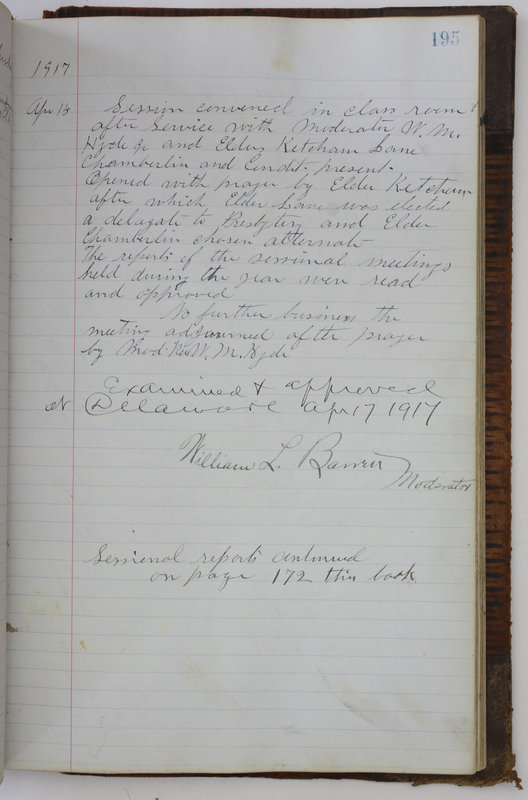 195
1917
Apr 15 Session convened in class room
after service with Moderator W. M.
Hyde Jr and Elders Ketcham Lane
Chamberlin and Condit present.
Opened with prayer by Elder Ketcham
after which Elder Lane was elected
a delagate to Presbytery and Elder
Chamberlin chosen alternate
The reports of the sessional meetings
held during the year were read
and approved
No further business the
meeting adjourned after prayer
by Mod. Rev W. M. Hyde
Examined & approved
at Delaware Apr 17 1917
William L. Barrett
Moderator
Sessional reports continued
on page 172 this book